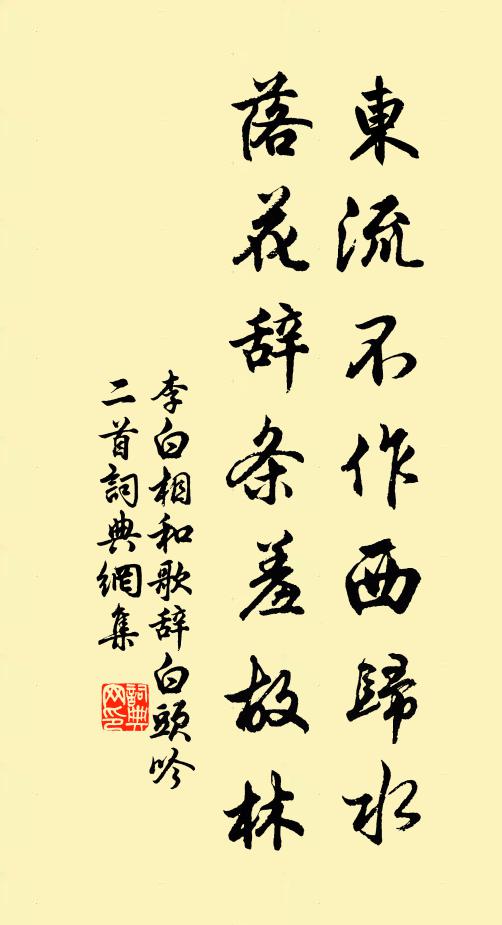 東流不作西歸水
落花辞条羞故林
李白相和歌辞白頭吟
二首詞典網集
詞典
网印